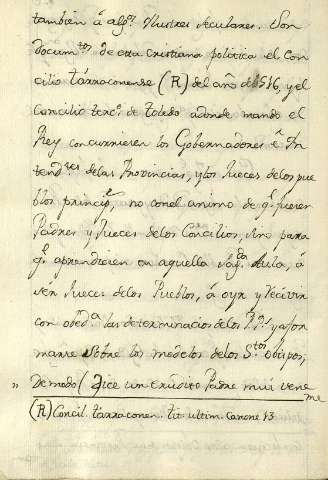 tambien á algs. Ilustres seculares. Son
Documtos. de esta cristiana politica el Con
cilio tarraconense (R) del año de 516, y el
Concilio tercº. de Toledo adonde mandó el
Rey concurrieren los Gobernadores é In
tendtes. de las Provincias, y los Jueces de los pue
blos princips., no con el animo de q.e fueren
Padres y Jueces de los Concilios, sino para
q.e aprendieren en aquella Sagda. Aula, á
ser Jueces de los Pueblos, á oyr y recivir
con obeda. las determinacios de los P.Ps. y a for
marse sobre los modelos de los Stos. Obispos,
,, De modo (Dice un erúdito Padre mui vene
me
(R) Concil. tarraconen. tit. ultim. canone 13